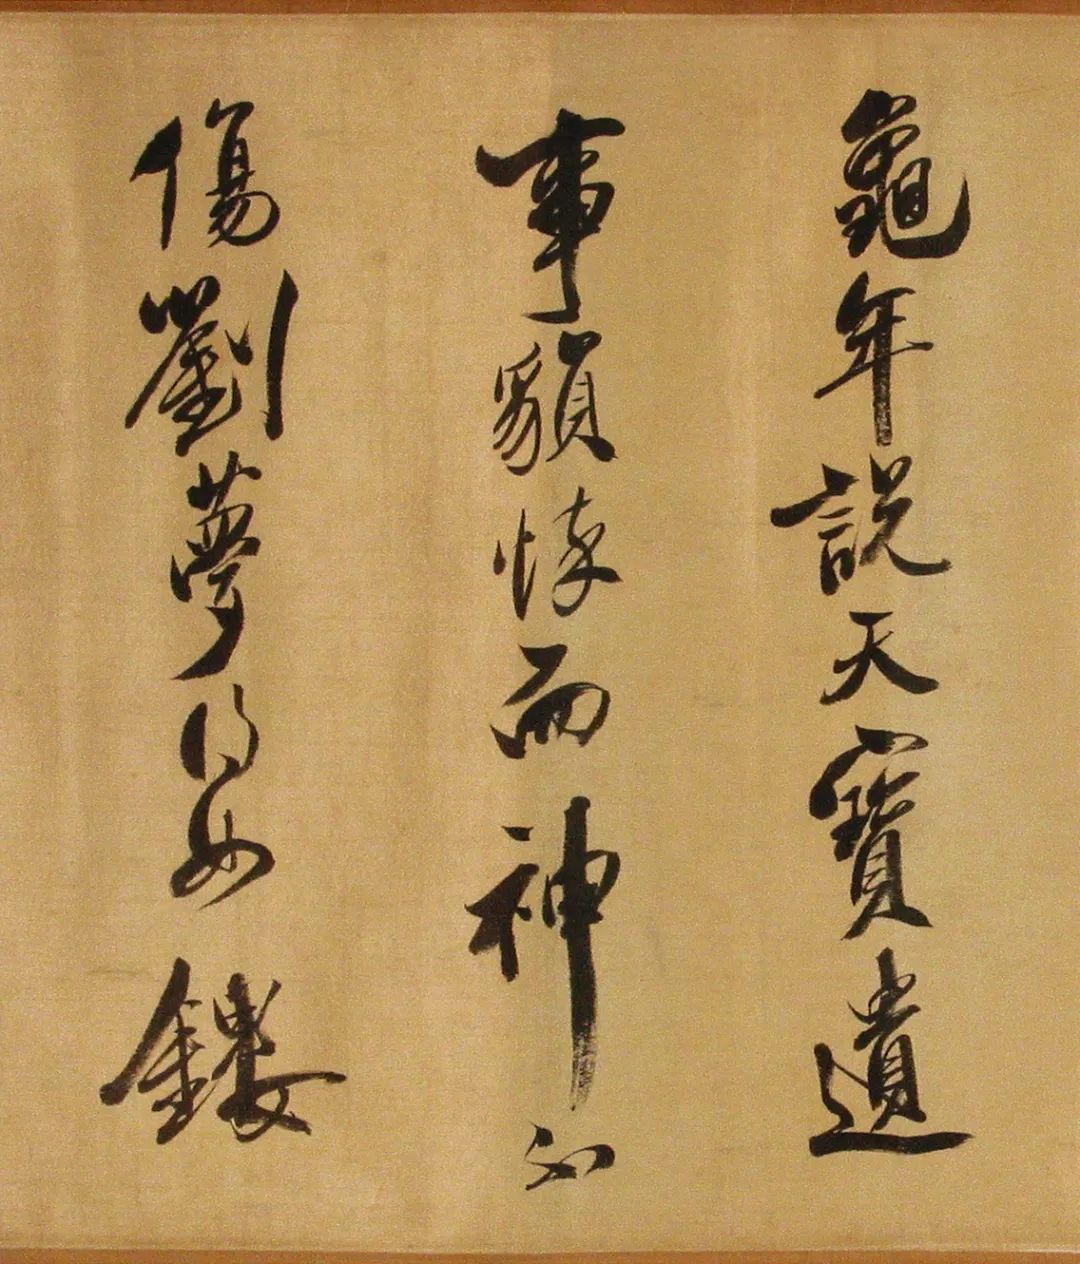 龜年説天寶遺
事貌悴而神不
傷劉夢得如鏤